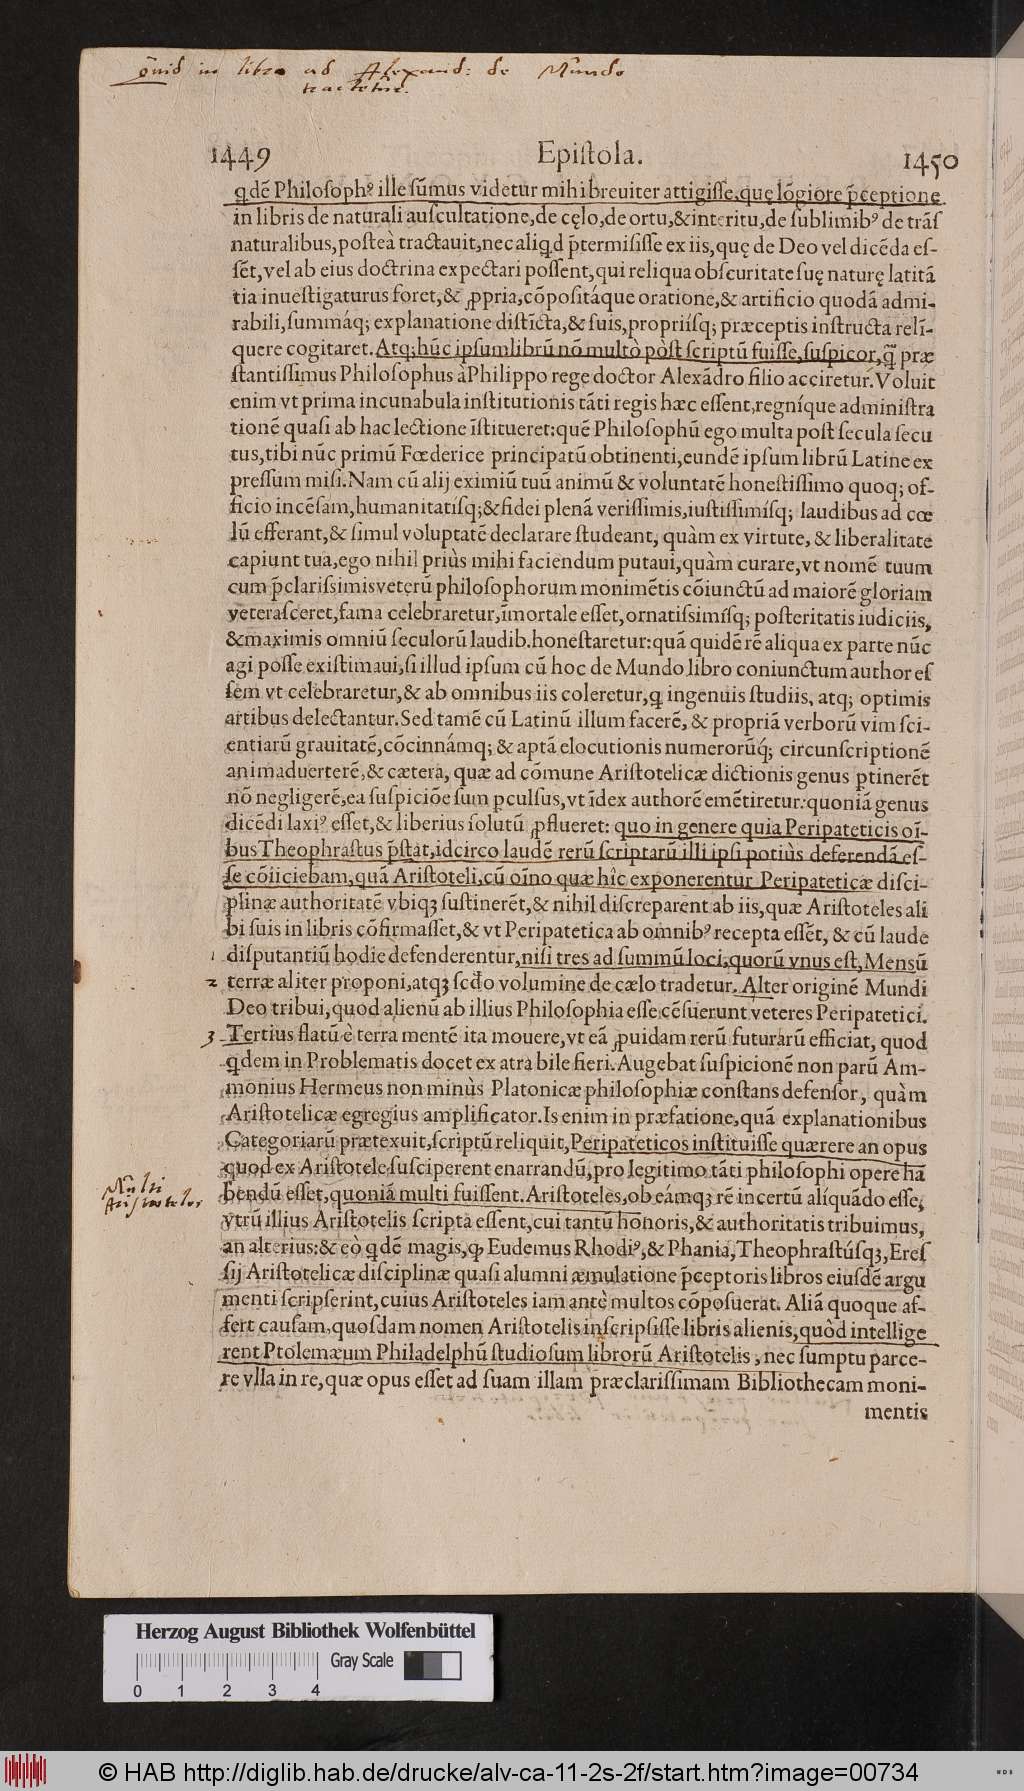 Quid in libro ad Alexand: de Mundo
tractetur.
1449 Epiſtola. 1450
qdẽ Philoſophꝰ ille ſũmus videtur mihi breuiter attigiſſe, quę lõgiore p̃ceptione
in libris de naturali auſcultatione, de cęlo, de ortu, & interitu, de ſublimibꝰ de trãſ
naturalibus, poſteà tractauit, nec aliqd p̃termiſiſſe ex iis, quę de Deo vel dicẽda eſ-
ſẽt, vel ab eius doctrina expectari poſſent, qui reliqua obſcuritate ſuę naturę latitã
tia inueſtigaturus foret, & ꝓpria, cõpoſitáque oratione, & artificio quodã admi-
rabili, ſummáq; explanatione diſtĩcta, & ſuis, propriíſq; præceptis inſtructa relĩ-
quere cogitaret. Atq; hũc ipſum librũ nõ multò pòſt ſcriptũ fuiſſe, ſuſpicor, q̃ præ
ſtantiſſimus Philoſophus à Philippo rege doctor Alexãdro filio acciretur. Voluit
enim vt prima incunabula inſtitutionis tãti regis hæc eſſent, regníque adminiſtra
tionẽ quaſi ab hac lectione ĩſtitueret: quẽ Philoſophũ ego multa poſt ſecula ſecu
tus, tibi nũc primũ Fœderice principatũ obtinenti, eundẽ ipſum librũ Latine ex
preſſum miſi. Nam cũ alij eximiũ tuũ animũ & voluntatẽ honeſtiſſimo quoq; of-
ficio incẽſam, humanitatiſq; & fidei plenã veriſſimis, iuſtiſſimíſq; laudibus ad cœ
lũ efferant, & ſimul voluptatẽ declarare ſtudeant, quàm ex virtute, & liberalitate
capiunt tua, ego nihil priùs mihi faciendum putaui, quàm curare, vt nomẽ tuum
cum p̃clariſsimis veterũ philoſophorum monimẽtis cõiunctũ ad maiorẽ gloriam
veteraſceret, fama celebraretur, ĩmortale eſſet, ornatiſsimíſq; poſteritatis iudiciis,
& maximis omniũ ſeculorũ laudib. honeſtaretur: quã quidẽ rẽ aliqua ex parte nũc
agi poſſe exiſtimaui, ſi illud ipſum cũ hoc de Mundo libro coniunctum author eſ
ſem vt celebraretur, & ab omnibus iis coleretur, q ingenuis ſtudiis, atq; optimis
artibus delectantur. Sed tamẽ cũ Latinũ illum facerẽ, & propriã verborũ vim ſci-
entiarũ grauitatẽ, cõcinnámq; & aptã elocutionis numerorũq́; circunſcriptionẽ
animaduerterẽ, & cætera, quæ ad cõmune Ariſtotelicæ dictionis genus ꝑtinerẽt
nõ negligerẽ, ea ſuſpiciõe ſum ꝑculſus, vt ĩdex authorẽ emẽtiretur: quoniã genus
dicẽdi laxiꝰ eſſet, & liberius ſolutũ ꝓflueret: quo in genere quia Peripateticis oĩ-
bus Theophraſtus p̃ſtat, idcirco laudẽ rerũ ſcriptarũ illi ipſi potiùs deferendã eſ-
ſe cõiiciebam, quã Ariſtoteli, cũ oĩno quæ hîc exponerentur Peripateticæ diſci-
plinæ authoritatẽ vbiqꝫ ſuſtinerẽt, & nihil diſcreparent ab iis, quæ Ariſtoteles ali
bi ſuis in libris cõfirmaſſet, & vt Peripatetica ab omnibꝰ recepta eſſẽt, & cũ laude
1 diſputantiũ hodie defenderentur, niſi tres ad ſummũ loci, quorũ vnus eſt, Mensũ
2 terræ aliter proponi, atqꝫ ſcdo volumine de cælo tradetur. Alter originẽ Mundi
Deo tribui, quod alienũ ab illius Philoſophia eſſe cẽſuerunt veteres Peripatetici.
3 Tertius flatũ è terra mentẽ ita mouere, vt eã ꝓuidam rerũ futurarũ efficiat, quod
qdem in Problematis docet ex atra bile fieri. Augebat ſuſpicionẽ non parũ Am-
monius Hermeus non minùs Platonicæ philoſophiæ conſtans defenſor, quàm
Ariſtotelicæ egregius amplificator. Is enim in præfatione, quã explanationibus
Categoriarũ prætexuit, ſcriptũ reliquit, Peripateticos inſtituiſſe quærere an opus
quod ex Ariſtotele ſuſciperent enarrandũ, pro legitimo tãti philoſophi opere hã
Multi
Aristoteles
bendũ eſſet, quoniã multi fuiſſent. Ariſtoteles, ob eámqꝫ rẽ incertũ aliquãdo eſſe,
vtrũ illius Ariſtotelis ſcripta eſſent, cui tantũ honoris, & authoritatis tribuimus,
an alterius: & eò qdẽ magis, ꝙ Eudemus Rhodiꝰ, & Phania, Theophraſtúſqꝫ, Ereſ
ſij Ariſtotelicæ diſciplinæ quaſi alumni æmulatione p̃ceptoris libros eiuſdẽ argu
menti ſcripſerint, cuius Ariſtoteles iam antè multos cõpoſuerat. Aliã quoque aſ-
fert cauſam, quoſdam nomen Ariſtotelis inſcripſiſſe libris alienis, quòd intellige
rent Ptolemæum Philadelphũ ſtudioſum librorũ Ariſtotelis, nec ſumptu parce-
re vlla in re, quæ opus eſſet ad ſuam illam præclariſſimam Bibliothecam moni-
mentis
Herzog August Bibliothek Wolfenbüttel
Gray Scale
0 1 2 3 4
© HAB http://diglib.hab.de/drucke/alv-ca-11-2s-2f/start.htm?image=00734